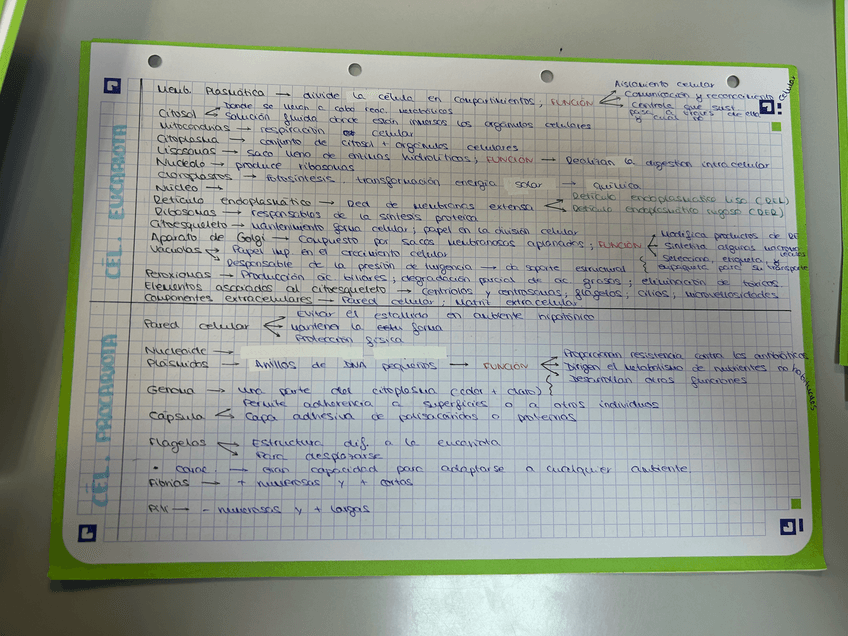 CÉL. EUCARIOTA
Memb. Plasmática → divide la célula en compartimentos, FUNCIÓN
Aislamiento celular
Comunicación y reconocimiento celular
Controla que sust. pasa a través de ella y cual no
Citosol
Donde se llevan a cabo reac. metabólicas
solución fluida donde están inmersos los orgánulos celulares
Mitocondrias → respiración celular
Citoplasma → conjunto de citosol + orgánulos celulares
Lisosomas → saco lleno de enzimas hidrolíticos; FUNCIÓN → Realizan la digestión intracelular
Nucléolo → produce ribosomas
Cloroplastos → Fotosíntesis, transformación energía solar → química
Núcleo →
Retículo endoplasmático → Red de membranas extensa
Retículo endoplasmático liso (REL)
Retículo endoplasmático rugoso (RER)
Ribosomas → responsables de la síntesis proteica
Citoesqueleto → mantenimiento forma celular; papel en la división celular
Aparato de Golgi → Compuesto por sacos membranosos aplanados; FUNCIÓN
Modifica productos de RE
Sintetiza algunas macromoléculas
Selecciona, etiqueta, y empaqueta para su transporte
Vacuolas
Papel imp. en el crecimiento celular
Responsable de la presión de turgencia → da soporte estructural
Peroxisomas → Producción ác biliares; degradación parcial de ac grasos; eliminación de tóxicos
Elementos asociados al citoesqueleto → centriolos y centrosomas; flagelos, cilios, microvellosidades
Componentes extracelulares → Pared celular; Matriz extracelular
CÉL. PROCARIOTA
Pared celular
Evitar el estallido en ambiente hipotónico
Mantener la forma
Protección física
Nucleoide →
Plásmidos → Anillos de DNA pequeños → FUNCIÓN
Proporcionan resistencia contra los antibióticos
Dirigen el metabolismo de nutrientes no habituales
Desarrollan otras funciones
Genoma → una parte del citoplasma (color + claro)
Cápsula
Permite adherencia a superficies o a otros individuos
Capa adhesiva de polisacáridos o proteínas
Flagelos
Estructura dif. a la eucariota
Para desplazarse
• Carac. → gran capacidad para adaptarse a cualquier ambiente
Fibrias → + numerosas y + cortas
Pili → - numerosos y + largas